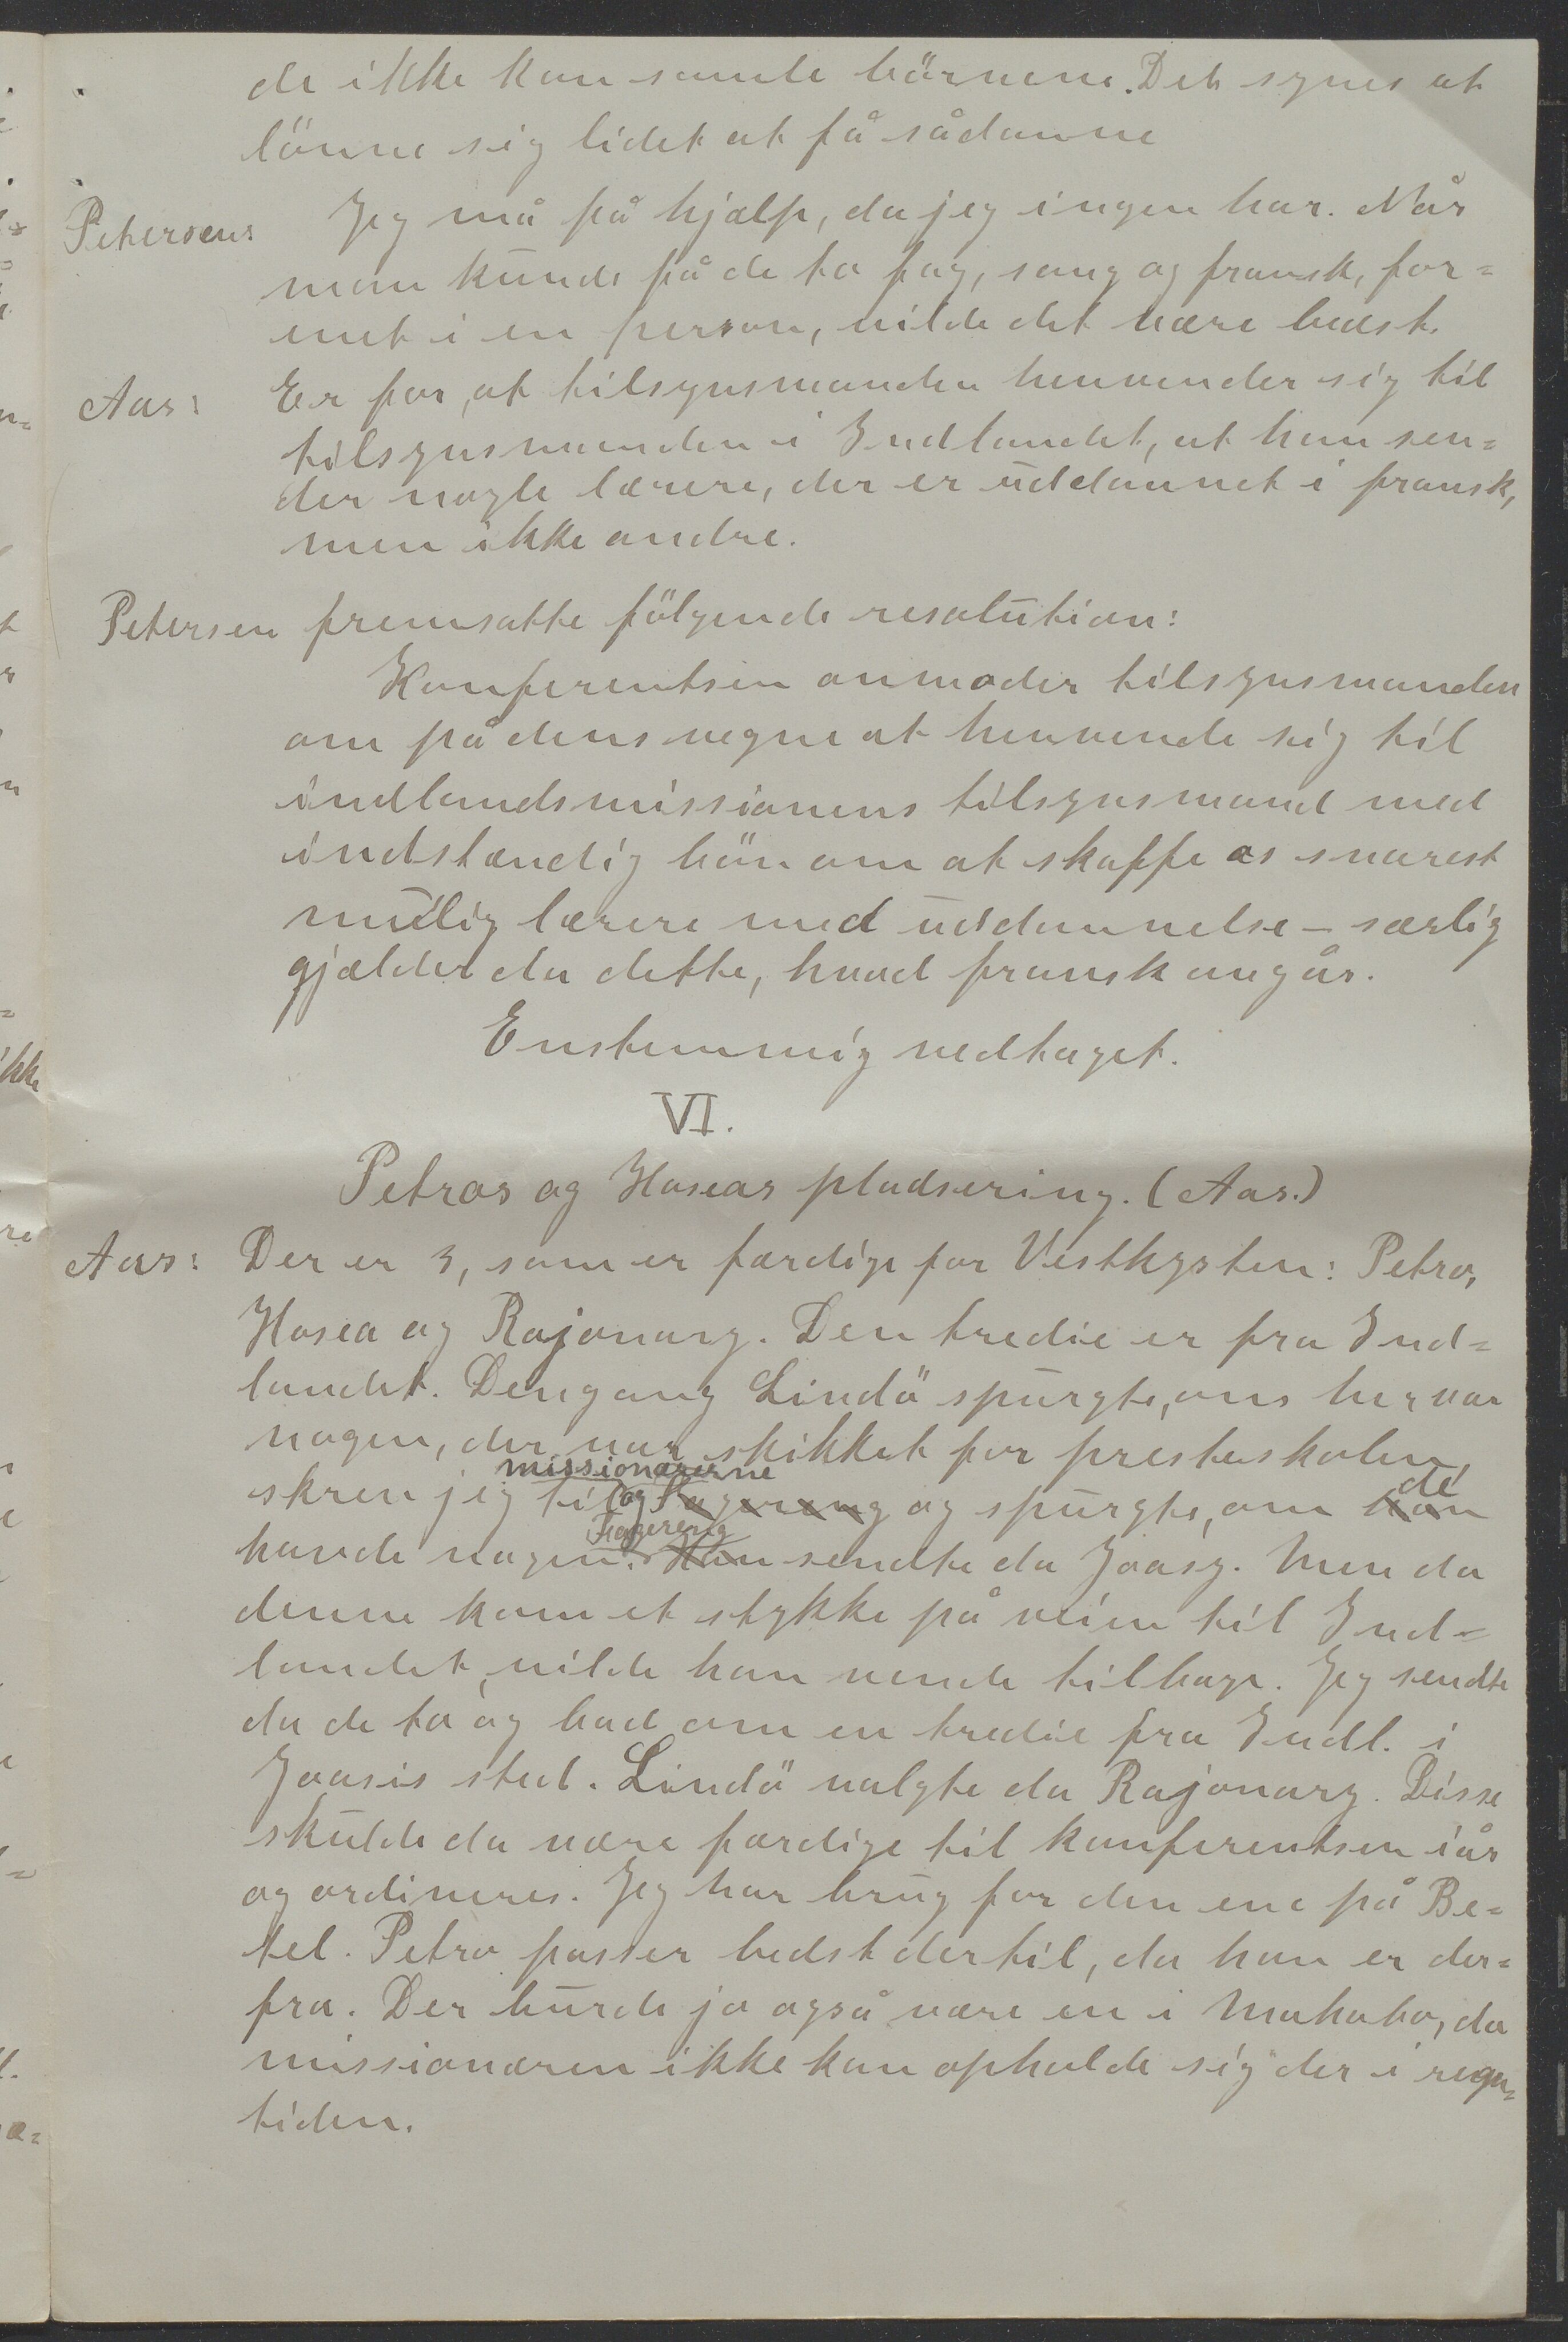 de ikke kan samle börnene. Det synes at
lönne sig lidet at få sådanne
Petersen: Jeg må få hjælp, da jeg ingen har. Når
man kunde få de to fag, sang og fransk, for=
enet i en person, vilde det være bedst.
Aas: Er for, at tilsynsmanden henvender sig til
tilsynsmanden i Indlandet, at han sen=
der nogle lærere, der er uddannet i fransk,
men ikke andre.
Petersen fremsatte fölgende resolution:
Konferentsen anmoder tilsynsmanden
om på dens vegne at henvende sig til
indlandsmissionens tilsynsmand med
indstændig bön om at skaffe os snarest
mulig lærere med uddannelse – særlig
gjælder da dette, hvad fransk angår.
Enstemmig vedtaget.
VI.
Petros og Hoseas pladsering. (Aas.)
Aas: Der er 3, som er færdige for Vestkysten: Petro,
Hosea og Rajonary. Den tredie er fra Ind=
landet. Dengang Lindö spurgte, om her var
nogen, der var skikket for presteskolen,
missionærerne
skrev jeg til og Fagereng og spurgte, om han de
Fagereng
havde nogen. Han sendte da Joasy. Men da
denne kom et stykke på veien til Ind=
landet, vilde han vende tilbage. Jeg sendte
da de to og bad om en tredie fra Indl. i
Joasis sted. Lindö valgte da Rajonary. Disse
skulde da være færdige til konferentsen iår
og ordineres. Jeg har brug for den ene på Be=
tel. Petro passer bedst dertil, da han er der=
fra. Der burde jo også være en i Mahabo, da
missionæren ikke kan opholde sig der i regn=
tiden.